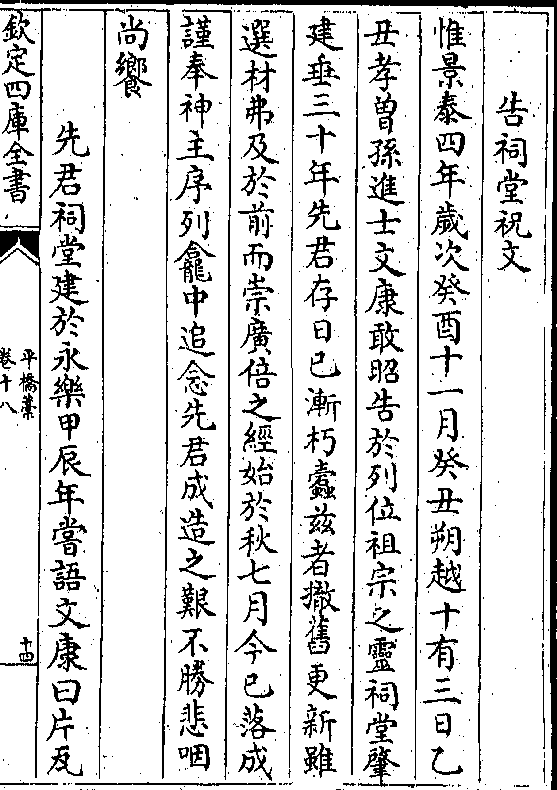 告祠堂祝文
惟景泰四年歲次癸酉十一月癸丑朔越十有三日乙
丑孝曾孫進士文康敢昭告於列位祖宗之靈祠堂肇
建垂三十年先君存日已漸朽蠹兹者撤舊更新雖
選材弗及於前而崇廣倍之經始於秋七月今已落成
謹奉神主序列龕中追念先君成造之艱不勝悲咽
尚饗
先君祠堂建於永樂甲辰年嘗語文康曰片瓦
欽定四庫全書
平橋藁
卷十八
十四